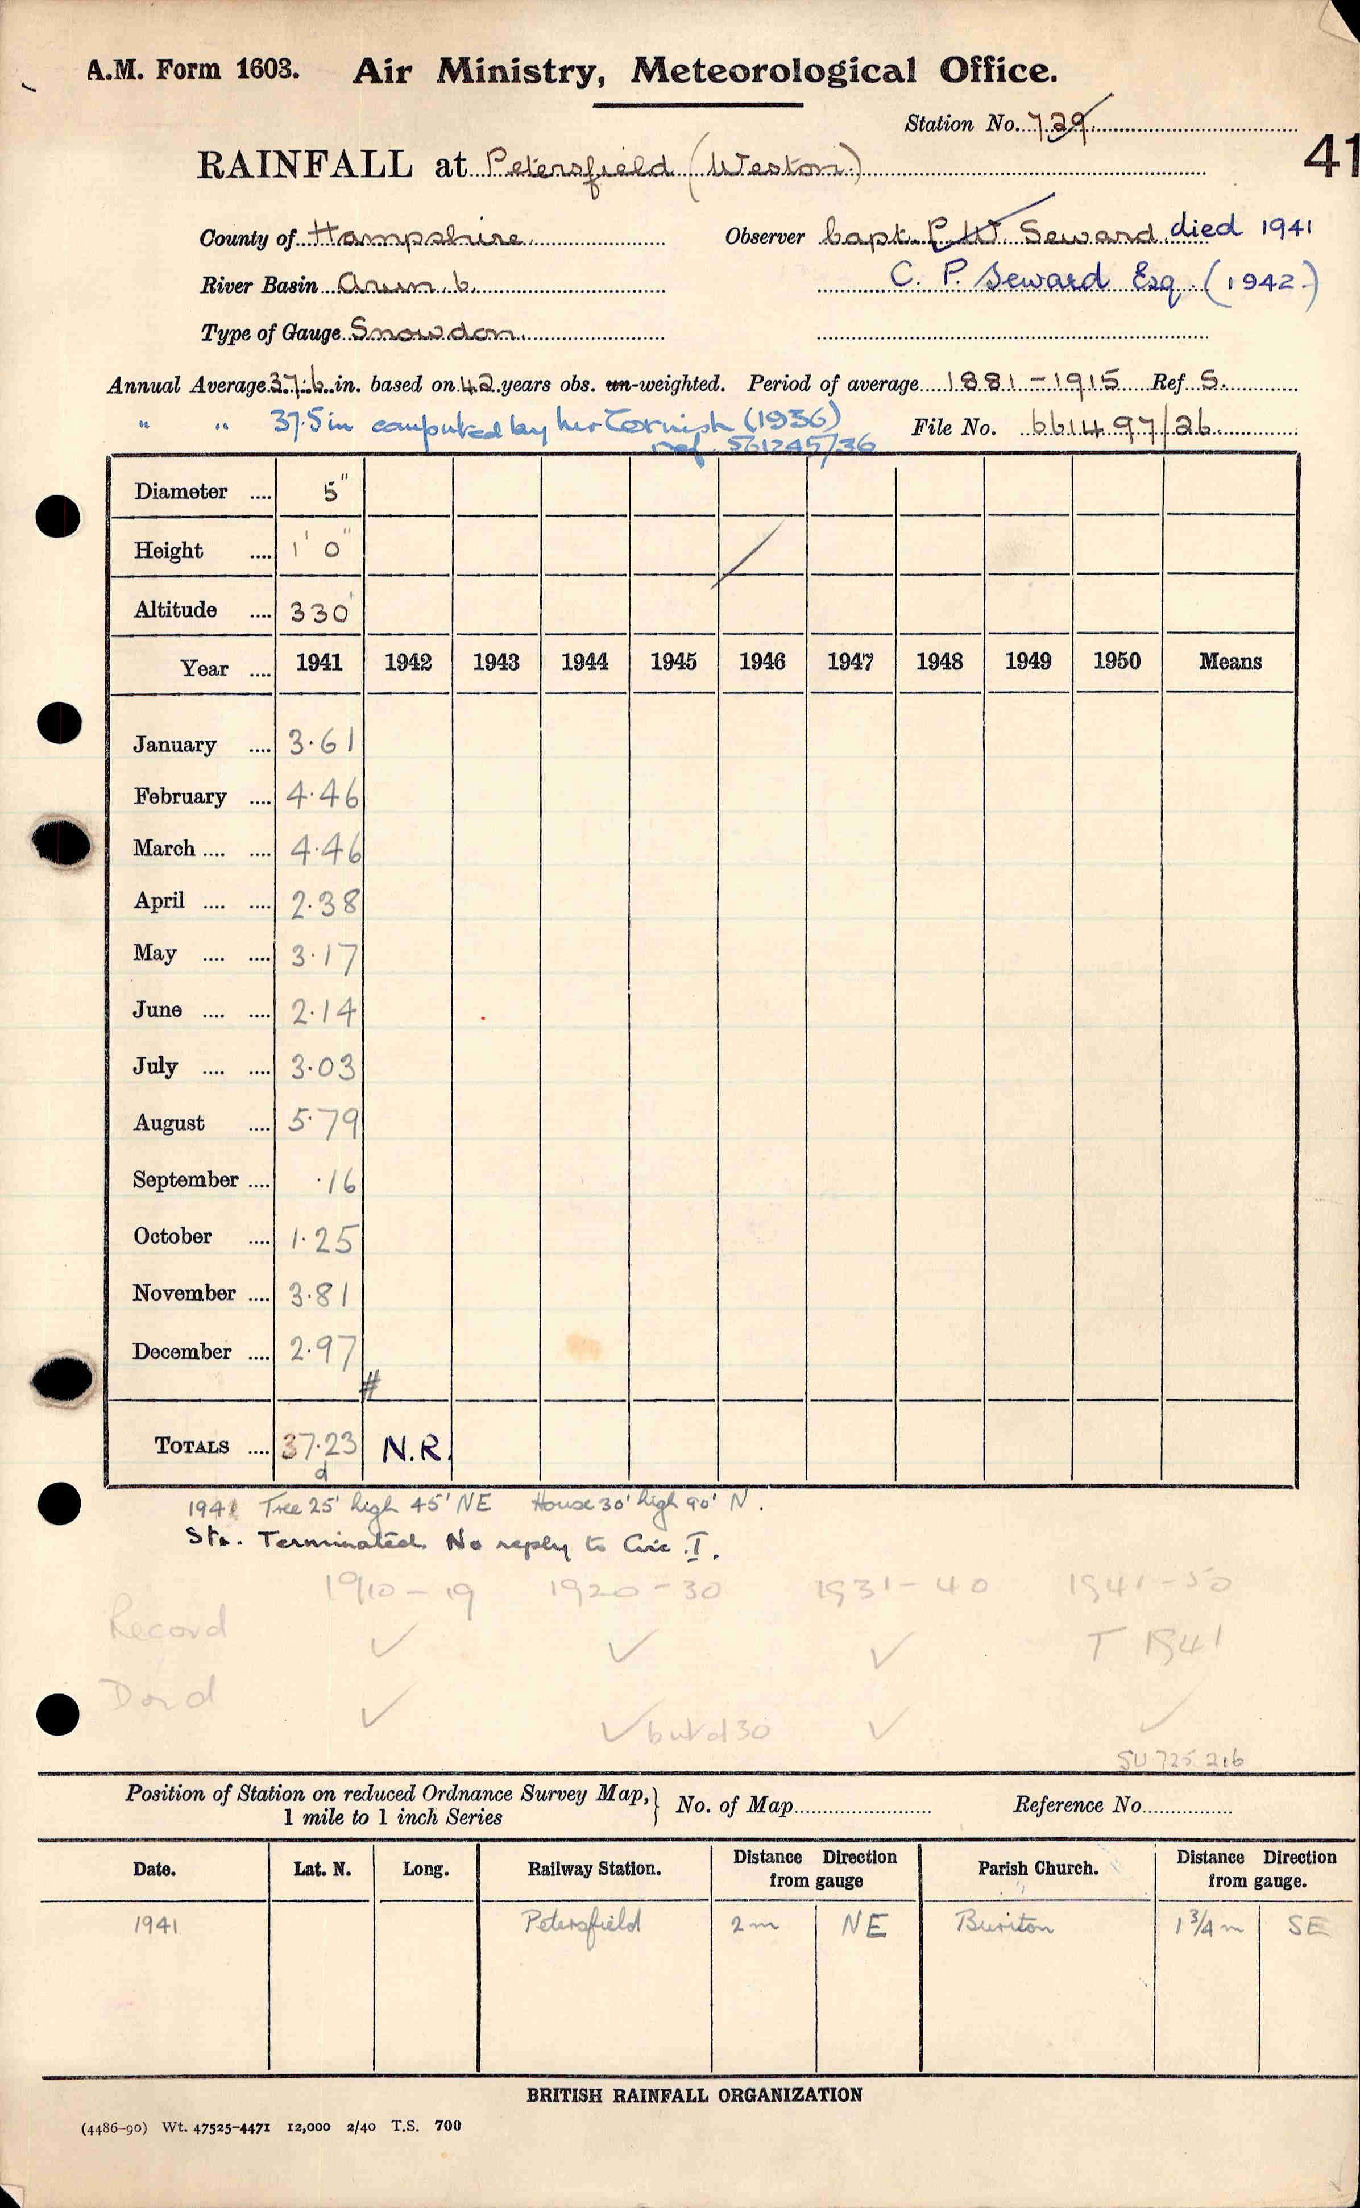 A.M. Form 1603. Air Ministry, Meteorological Office.
Station No. 729
41
RAINFALL at Petersfield (Weston)
County of Hampshire Observer Capt. P. W. Seward died 1941
River Basin Arun. 6. C. P. Seward Esq. (1942.)
Type of Gauge Snowdon
Annual Average 37.6 in. based on 42 years obs. un-weighted. Period of average 1881-1915 Ref S.
" " 37.5 in computed by Cornish (1936) File No. 661497/26
ref 561245/36
Diameter .... 5"
Height .... 1' 0"
Altitude .... 330'
Year .... 1941 1942 1943 1944 1945 1946 1947 1948 1949 1950 Means
January .... 3.61
February .... 4.46
March .... .... 4.46
April .... .... 2.38
May .... .... 3.17
June .... .... 2.14
July .... .... 3.03
August .... 5.79
September .... .16
October .... 1.25
November .... 3.81
December .... 2.97
#
TOTALS .... 37.23 N.R.
d
1941 Tree 25' high 45' NE House 30' high 90' N.
Stn. Terminated. No reply to Circ. I.
1910-19 1920-30 1931-40 1941-50
Record ✓ ✓ ✓ T 1941
D or d ✓ ✓ but d 30 ✓ ✓
SU 725 216
Position of Station on reduced Ordnance Survey Map, 1 mile to 1 inch Series } No. of Map Reference No.
Date. Lat. N. Long. Railway Station. Distance Direction from gauge Parish Church. Distance Direction from gauge.
1941 Petersfield 2m NE Buriton 1¾m SE
BRITISH RAINFALL ORGANIZATION
(4486-90) Wt. 47525-4471 12,000 2/40 T.S. 700